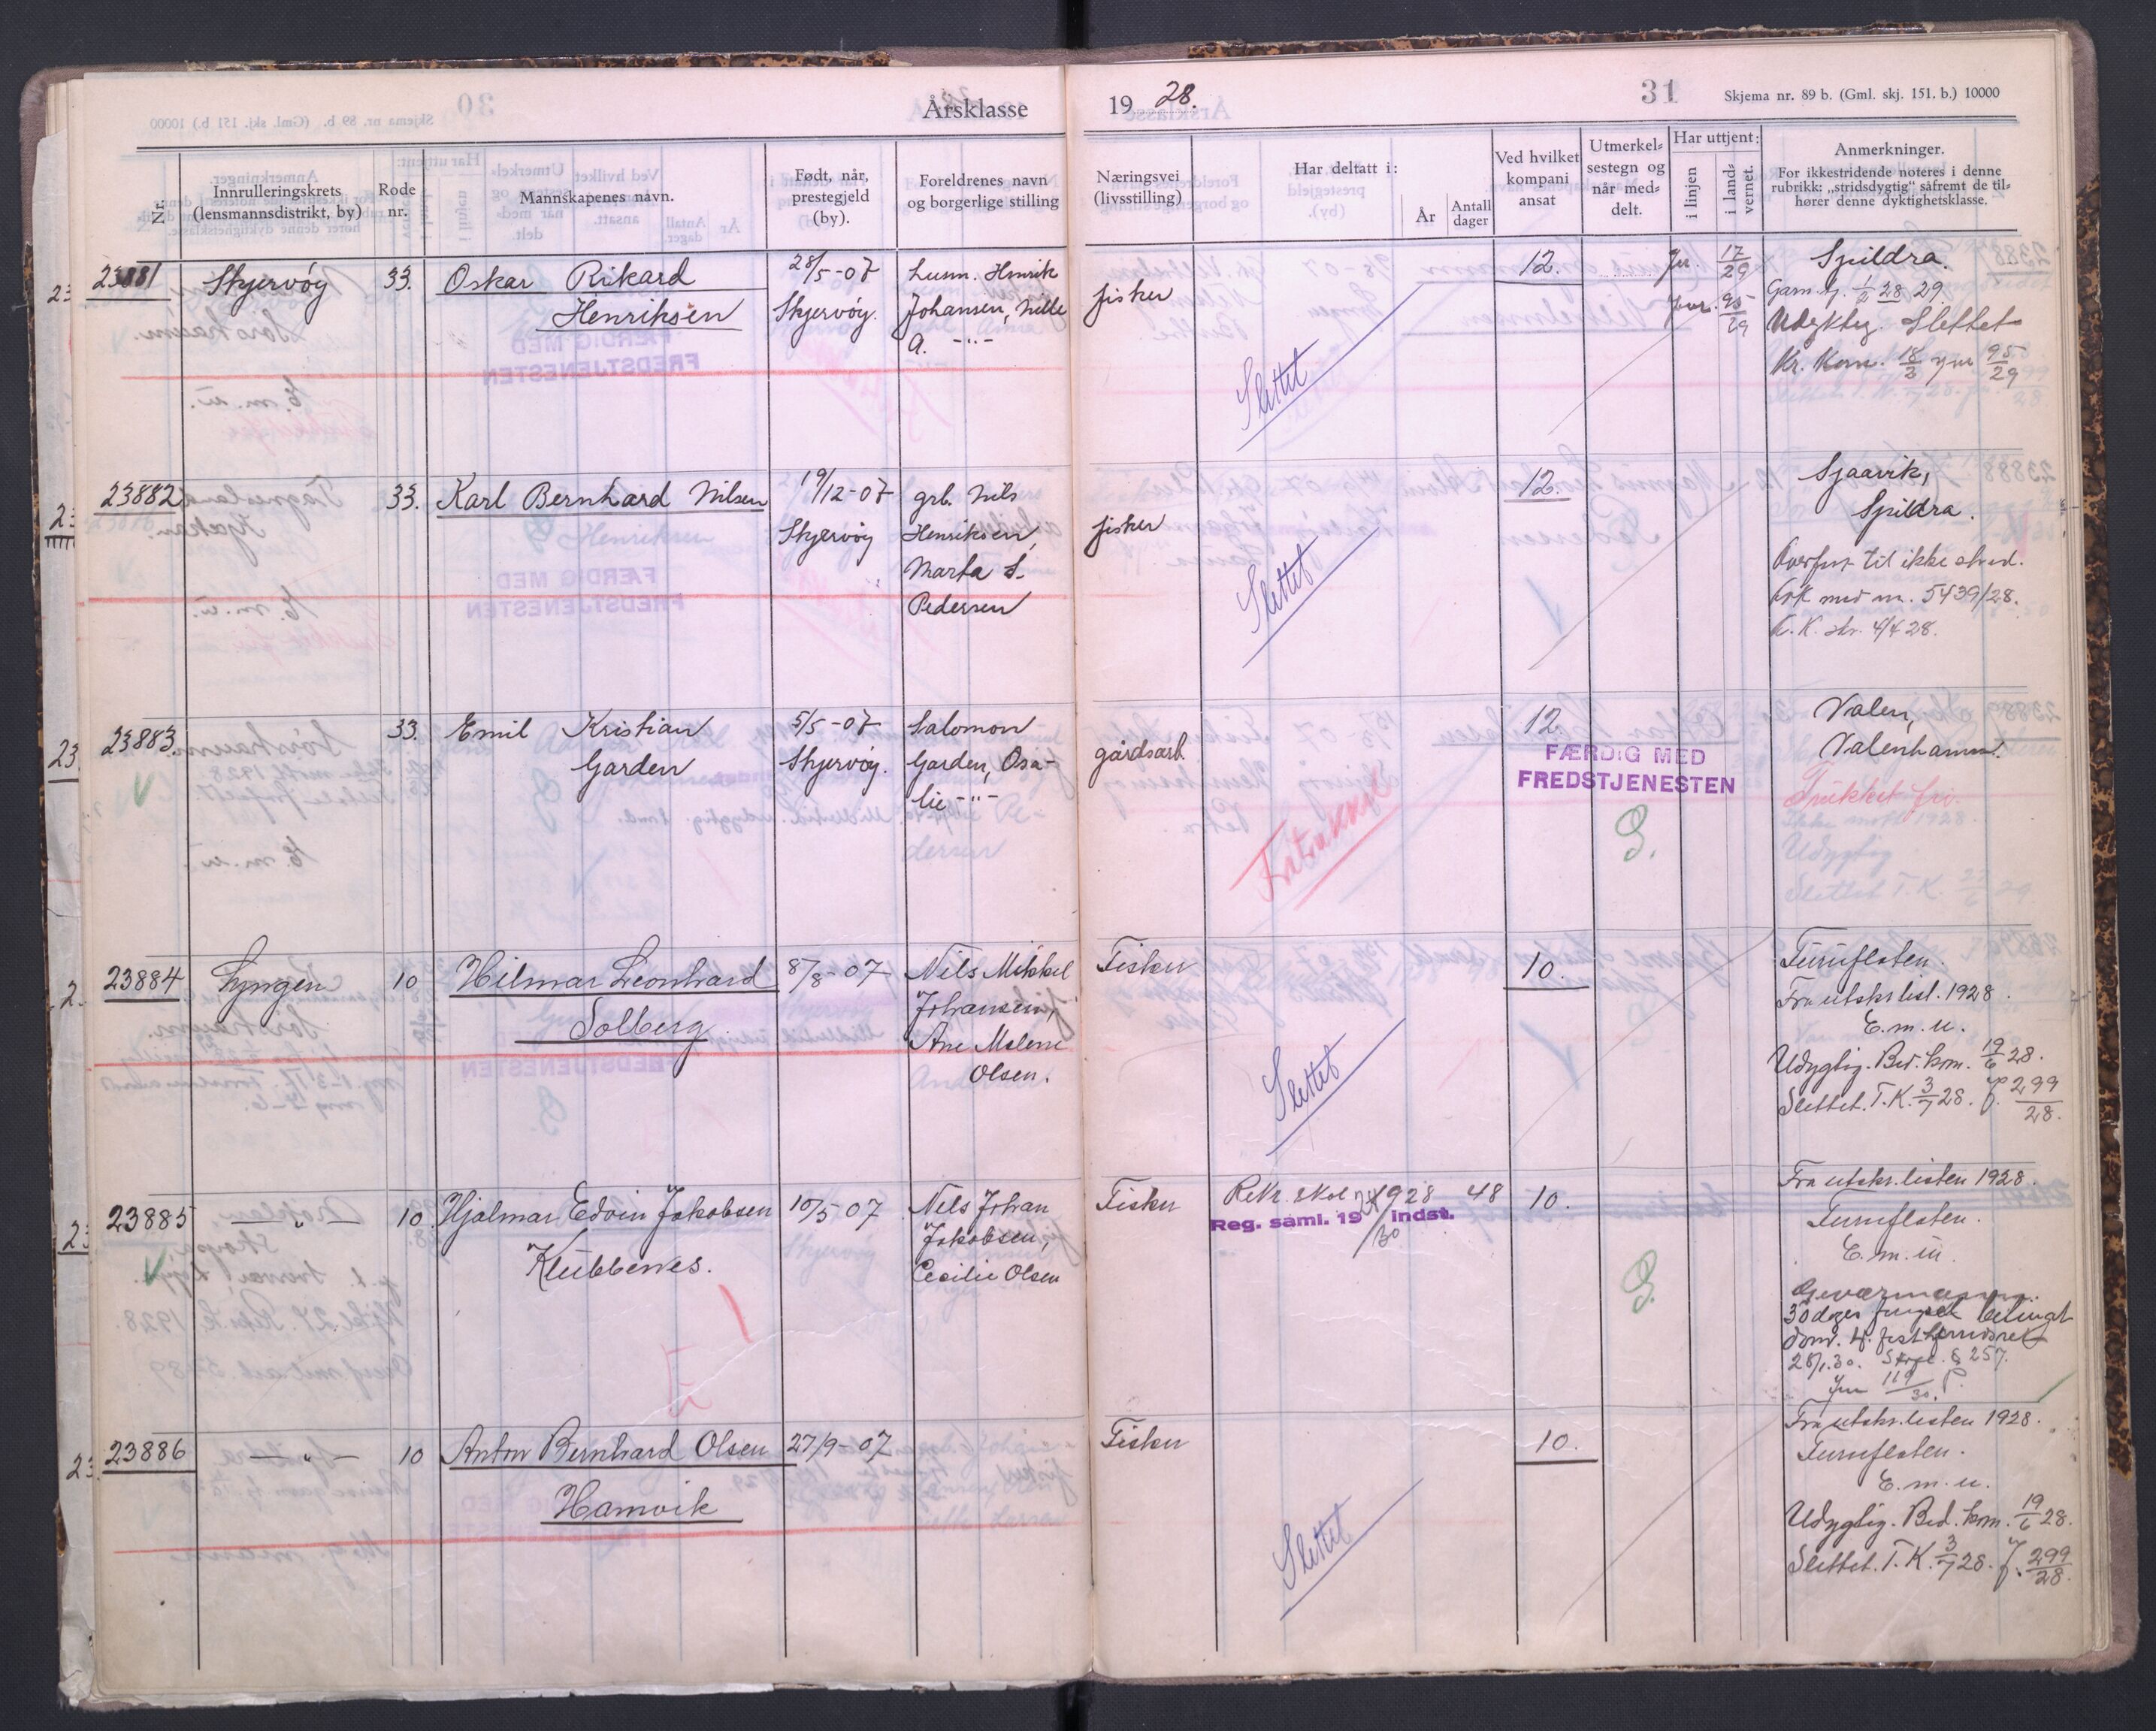 Årsklasse 1928.
31
Skjema nr. 89 b. (Gml. skj. 151. b.) 10000
Nr.
Innrulleringskrets
(lensmannsdistrikt, by)
Rode
nr.
Mannskapenes navn.
Født, når,
prestegjeld
(by).
Foreldrenes navn
og borgerlige stilling
Næringsvei
(livsstilling)
Har deltatt i:
År
Antall
dager
Ved hvilket
kompani
ansat
Utmerkel=
sestegn og
når med=
delt.
Har uttjent:
i linjen
i lands=
vernet.
Anmerkninger.
For ikkestridende noteres i denne
rubrikk: „stridsdygtig" såfremt de til=
hører denne dyktighetsklasse.
23881
Skjervöy
33.
Oskar Rikard
Henriksen
28/5-07
Skjervöy.
Lusm. Henrik
Johansen, Nille
A. -"-
fisker
Slettet
12.
Jn. 17/29
Jnr. 95/29
Spildra.
28 29.
Udygtig. Slettet
Kr. Kom. 18/2 jnr 95/29
23882
33.
Karl Bernhard Nilsen
19/12-07
Skjervöy
grb. Nils
Henriksen,
Marta S.
Pedersen
fisker
Slettet
12.
Sjaavik,
Spildra.
Overført til ikke strid.
med nr. 5439/28.
K. skr. 4/4 28.
23883.
33.
Emil Kristian
Garden
5/5-07
Skjervöy.
Salomon
Garden, Osa-
lie -"-
gårdsarb.
Fritrukket
12.
FÆRDIG MED
FREDSTJENESTEN
G.
Valen,
Valenhamn.
Trukket fri.
23884
Lyngen
10
Hilmar Leonhard
Solberg.
8/8-07
Nils Mikkel
Johansen,
Ane Malene
Olsen.
Fisker
Slettet
10.
Furuflaten.
Fra utskr.list. 1928.
E.m.u.
Udygtig. Bed. kom. 19/6 28.
Slettet. T.K. 3/7 28. J. 299/28.
23885
— " —
10
Hjalmar Edvin Jakobsen
Klubbenes.
10/5 07
Nils Johan
Jakobsen,
Cecilie Olsen
Fisker
Rekr. skol 1928 48
Reg. saml. 19 24/30 indst.
10.
G.
Fra utskr.listen 1928.
Furuflaten.
E.m.u.
Geværmann.
30 dager fengsel betinget
dom. herredsret
28/1.30. Strfl. § 257.
Jnr 119/30.
23886
— " —
10
Anton Bernhard Olsen
Hamvik
27/9-07
Fisker
Slettet
10.
Fra utskr.listen 1928.
Furuflaten.
E.m.u.
Udygtig. Bed. kom. 19/6 28.
Slettet. T.K. 3/7 28. J. 299/28.